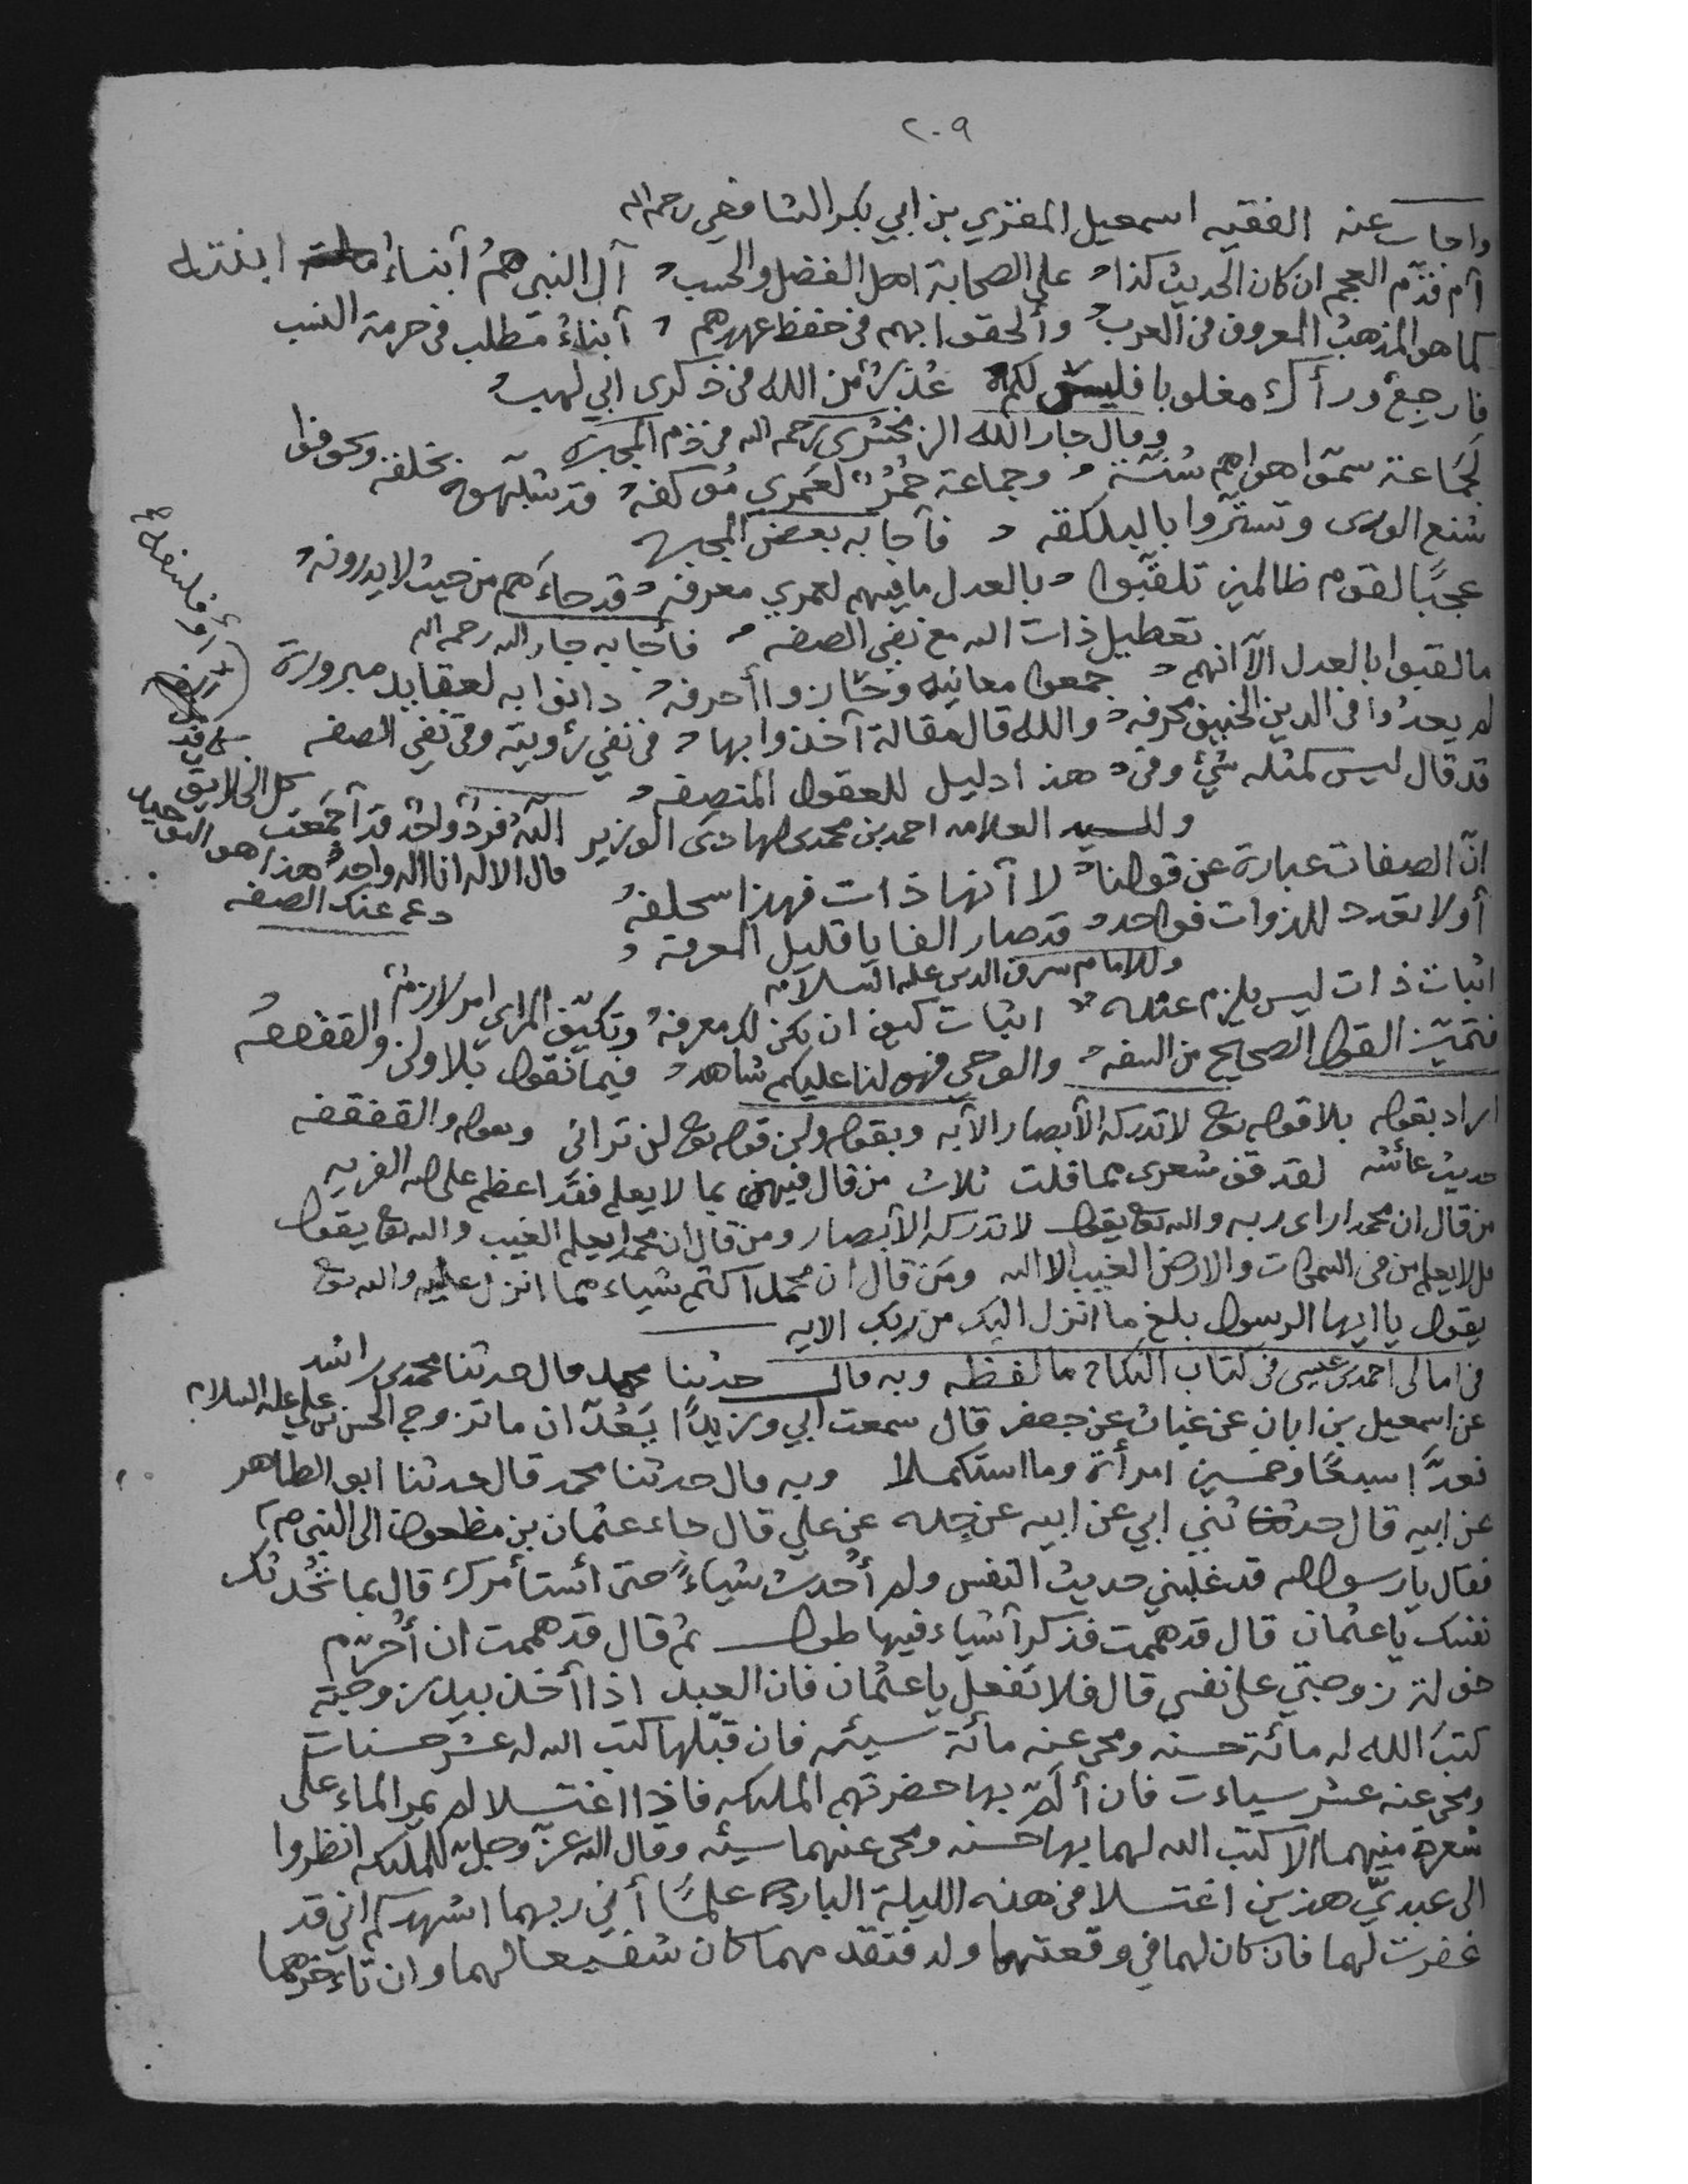 ٢٠٩
واجاب عنه الفقيه اسمعيل المقري بن ابي بكر الشافعي رحمه الله
أم قدّم العجم ان كان الحديث كذا على الصحابة اهل الفضل والحسب آل النبي همُ أبناء ابنته
كما هو المذهبُ المعروف في العرب وألحقوا بهم في حفظ عهدهم أبناءُ مطلب في حرمة النسب
فارجع ورأك مغلوبا فليس لكم عُذرٌ من الله في ذكرى ابي لهب
وقال جار الله الزمخشري رحمه الله في ذم المجبرة
لَجَماعة سمّوا هواهم سُنّة وجماعة حُمُرٌ لعَمري مُوكفه قد شبّهوه بخلقه وتخوفوا
شنع الورى وتستّروا بالبلكفه فأجابه بعض المجبره
عجبًا لقوم ظالمين تلقّبوا بالعدل ما فيهم لعمري معرفه قد جاءَهم من حيث لا يدرونه
تعطيل ذات الله مع نفي الصفه فأجابه جار الله رحمه الله
ما لقبوا بالعدل الّا انهم جمعوا معانيه وحازوا أحرفه دانوا به لعقايد مبرورة
لم يعدُوا في الدين الحنيف محرفه والله قال مقالة أخذوا بها في نفي رؤيته وفي نفي الصفه
قد قال ليس كمثله شيٌ وفي هذا دليل للعقول المنصفه
وللسيد العلامه احمد بن محمد بن الهادي الوزير اللهُ فردٌ واحدٌ قد أجمَعت كل الخلايق
انّ الصفات عبارة عن قولنا قال الاله انا اله واحدٌ هذا هو التوحيد
لا أنها ذات فهذا سخلفهُ دع عنك الصفه
أولا تعدد للذوات فواحد قد صار الفا يا قليل المعرفه
وللامام شرف الدين عليه السلام
اثبات ذات ليس يلزم عنده اثبات كيف ان يكن لك معرفه وتكيّف المرأى امر لازمٌ
فتميّز القول الصحيح من السفه والوحي فهو لنا عليكم شاهد فيما نقول بلا ولن والقفقفه
اراد بقوله بلا قوله تعالى لا تدركه الأبصار الآيه وبقوله ولن قوله تعالى لن تراني وبقوله والقفقفه
حديث عائشه لقد قف شعري مما قلت ثلاث من قال فيهن بما لا يعلم فقد اعظم على الله الفريه
من قال ان محمدا راى ربه والله تعالى يقول لا تدركه الأبصار ومن قال ان محمدا يعلم الغيب والله تعالى يقول
قل لا يعلم من في السموات والارض الغيب الا الله ومَن قال ان محمدا كتم شياء مما انزل عليه والله تعالى
يقول يا ايها الرسول بلغ ما انزل اليك من ربك الايه
في امالي احمد بن عيسى في كتاب النكاح ما لفظه وبه قال حدثنا محمد قال حدثنا محمد بن راشد
عن اسمعيل بن ابان عن غياث عن جعفر قال سمعت ابي وزيدًا يَعُدّان ما تزوج الحسن بن علي عليه السلام
فعدّا سبعًا وخمسين امرأة وما استكملا وبه قال حدثنا محمد قال حدثنا ابو الطاهر
عن ابيه قال حدثني ابي عن ابيه عن جده عن علي قال جاء عثمان بن مظعون الى النبي صم
فقال يا رسول الله قد غلبني حديث النفس ولم أُحدث شياءً حتى استأمرك قال بما تُحدثك
نفسك يا عثمان قال قد هممت فذكر أشياء فيها طول ثم قال قد هممت ان أُحرّم
خولة زوجتي على نفسي قال فلا تفعل يا عثمان فان العبد اذا أخذ بيد زوجته
كتبَ الله له مائة حسنه ومحى عنه مائة سيئه فان قبّلها كتب الله له عشر حسنات
ومحى عنه عشر سياءت فان ألَمّ بها حضرتهم الملئكه فاذا اغتسلا لم يمر الماء على
شعرة منهما الا كتب الله لهما بها حسنه ومحى عنهما سيئه وقال الله عزّ وجلّ للملئكه انظروا
الى عبديّ هذين اغتسلا في هذه الليلة الباردة علمًا أني ربهما اشهدكم اني قد
غفرت لهما فان كان لهما في وقعتهما ولد فتقدمهما كان شفيعا لهما وان تاءخرهما